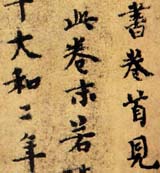 書卷首見
此卷末若
大和二年